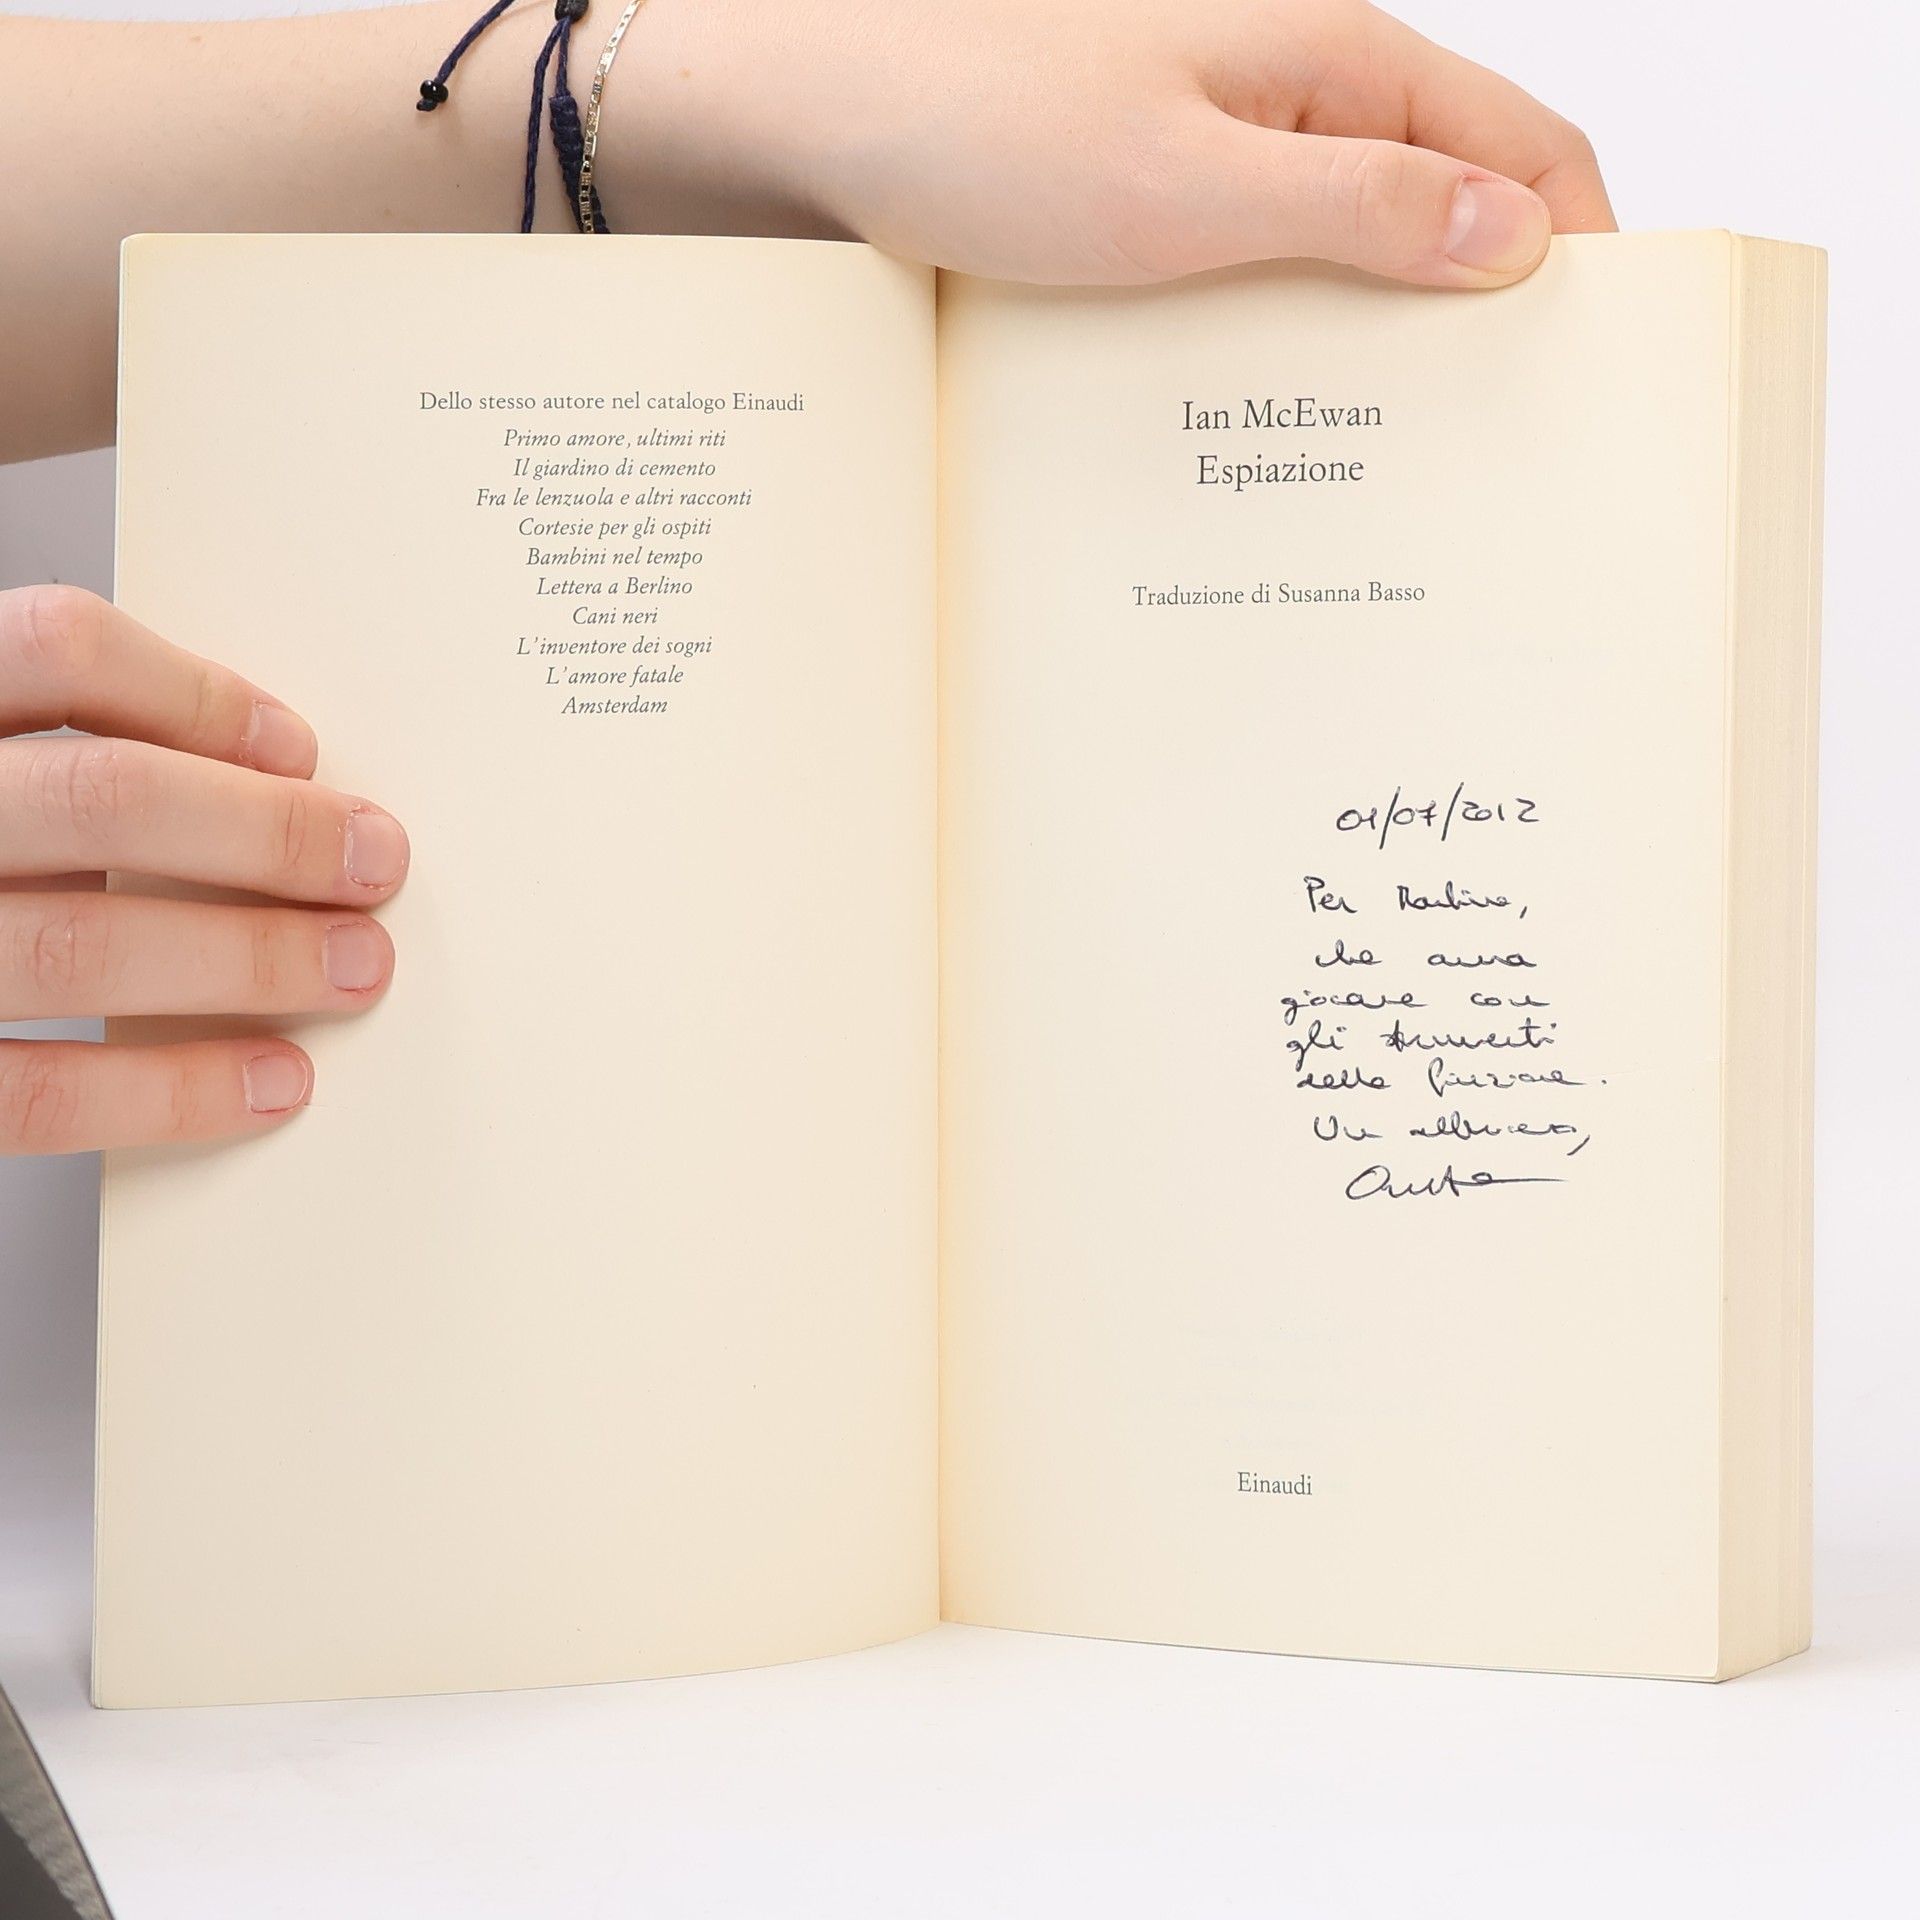 Dello stesso autore nel catalogo Einaudi
Primo amore, ultimi riti
Il giardino di cemento
Fra le lenzuola e altri racconti
Cortesie per gli ospiti
Bambini nel tempo
Lettera a Berlino
Cani neri
L'inventore dei sogni
L'amore fatale
Amsterdam
Ian McEwan
Espiazione
Traduzione di Susanna Basso
01/07/2012
Per Martina,
che ama
giocare con
gli strumenti
della finzione.
Un abbraccio,
Einaudi